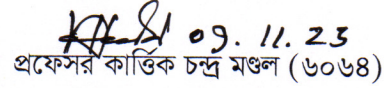 09. 11. 23
প্রফেসর কার্ত্তিক চন্দ্র মণ্ডল (৬০৬৪)